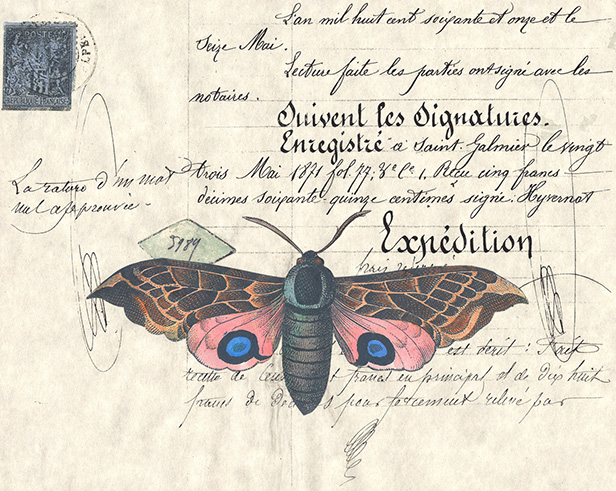 POSTES
REPUBLIQUE FRANC
L'an mil huit cent soixante et onze et le
Seize Mai.
Lecture faite les parties ont signé avec les
notaires.
Suivent les Signatures.
Enregistré à Saint Galmier le vingt
trois Mai 1871 fol. 77, Vº Cº 1. Reçu cinq francs
décimes soixante-quinze centimes signé: Hyvernat
La rature d'un mot
nul approuvée
Expédition
5189
est écrit :
recette de francs en principal et de dix huit
francs de pour forcément relevé par